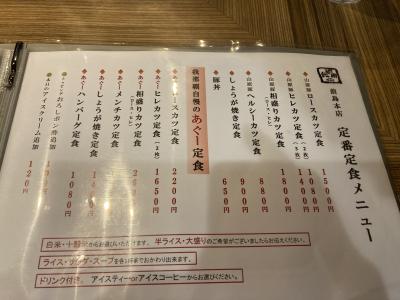 龍潭本店
定番定食メニュー
山原豚 ロースカツ定食 1500円
山原豚 ヒレカツ定食(2枚) 1000円
(3枚) 1400円
山原豚 相盛りカツ定食 (ロース・ヒレ) 1800円
山原豚 ヘルシーカツ定食 880円
しょうが焼き定食 900円
豚丼 650円
我那覇自慢の あぐー定食
ロースカツ定食 2200円
あぐー ヒレカツ定食(2枚) 1650円
あぐー 相盛りカツ定食 (ロース・ヒレ)
あぐー メンチカツ定食
あぐー しょうが焼き定食
あぐー ハンバーグ定食 1080円
おろしポン酢追加
本日のアイスクリーム追加 120円
白米・十穀米からお選びいただけます。 半ライス・大盛りのご希望がございましたらお伝えください。
ライス・サラダ・スープを各1杯までおかわり出来ます。
ドリンク付き。 アイスティーorアイスコーヒーからお選びください。